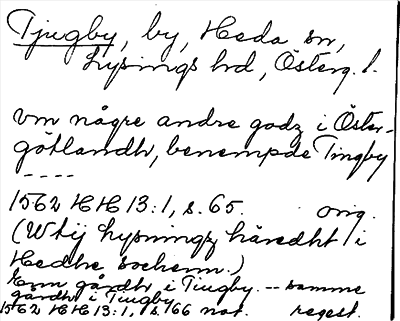 Tjugby, by, Heda sn,
Lysings hd, Österg. l.
vm någre andre godz i Öster-
götlandh, benempde Tingby
----
1562 HH 13:1, s. 65. orig.
(Wtij Lysningz häredht i
Hedhe sochenn.)
Enn gårdh i Tiugby. -- samme
gårdh i Tiugby
1562 HH 13:1, s. 166 not. regest.